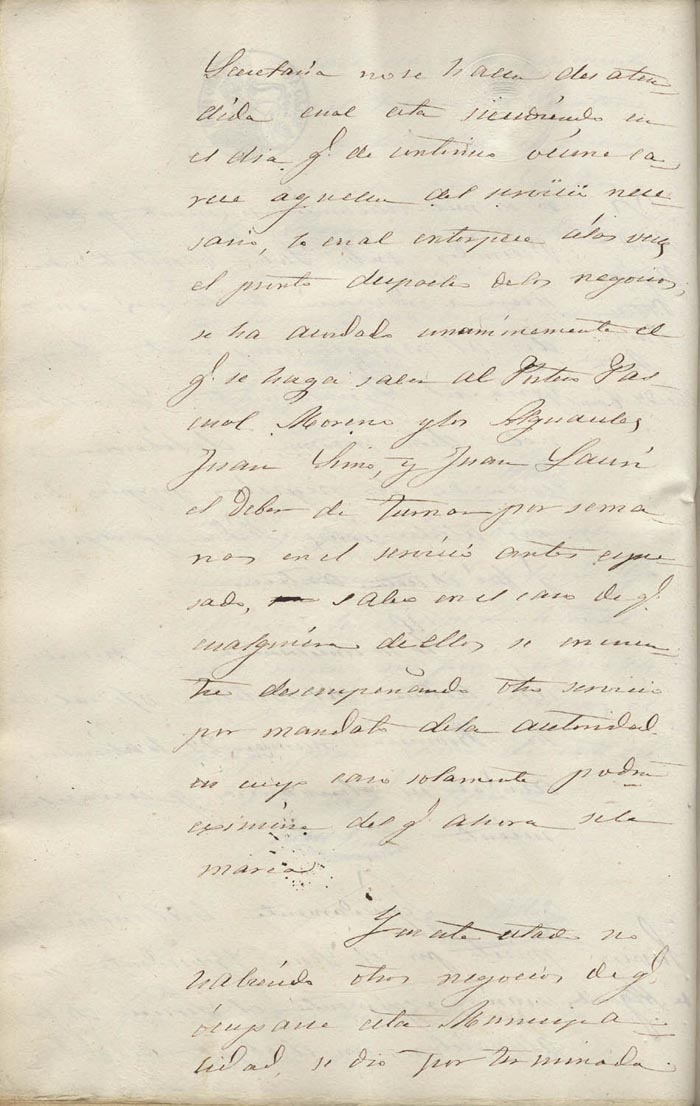 Secretaria no se halla desaten
dida cual esta sucediendo en
el dia q.e de continuo ócurre ca
rece aquella del servicio nece
sario, lo cual entorpece álas veces
el pronto despacho delos negocios;
se ha acordado unanimemente el
q.e se haga saber al Portero Pas
cual Moreno y los Alguaciles
Juan Simo, y Juan Lauri
el deber de turnar por sema
nas en el servicio antes espre
sado, salvo en el caso de q.e
cualquiera de ellos se encuen
tre desempeñando otro servicio
por mandato dela autoridad
en cuyo caso solamente podrá
eximirse del q.e ahora sele
marca
Y en este estado no
habiendo otros negocios de q.e
ócuparse esta Municipa
lidad, se dio por terminada